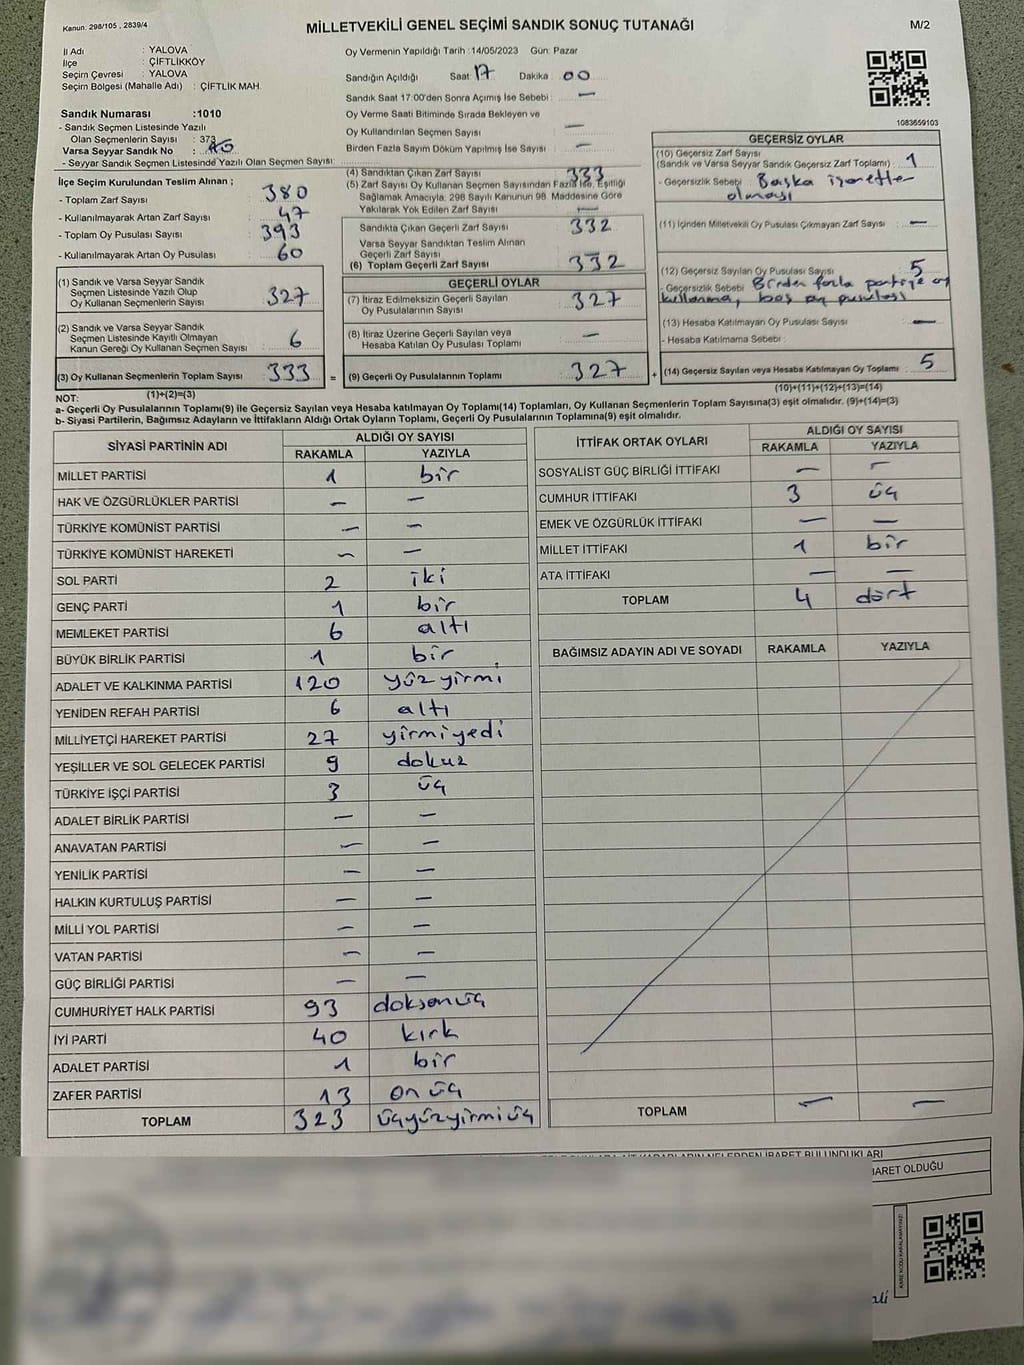 Kanun: 298/105 , 2839/4
MİLLETVEKİLİ GENEL SEÇİMİ SANDIK SONUÇ TUTANAĞI
M/2
İl Adı : YALOVA
İlçe : ÇİFTLİKKÖY
Seçim Çevresi : YALOVA
Seçim Bölgesi (Mahalle Adı) : ÇİFTLİK MAH.
Sandık Numarası :1010
- Sandık Seçmen Listesinde Yazılı
Olan Seçmenlerin Sayısı : 373
Varsa Seyyar Sandık No :
- Seyyar Sandık Seçmen Listesinde Yazılı Olan Seçmen Sayısı:
Oy Vermenin Yapıldığı Tarih :14/05/2023 Gün: Pazar
Sandığın Açıldığı Saat: 17 Dakika : 00
Sandık Saat 17:00'den Sonra Açımış İse Sebebi : —
Oy Verme Saati Bitiminde Sırada Bekleyen ve
Oy Kullandırılan Seçmen Sayısı : —
Birden Fazla Sayım Döküm Yapılmış İse Sayısı : —
1083659103
İlçe Seçim Kurulundan Teslim Alınan ;
- Toplam Zarf Sayısı : 380
- Kullanılmayarak Artan Zarf Sayısı : 47
- Toplam Oy Pusulası Sayısı : 393
- Kullanılmayarak Artan Oy Pusulası : 60
(1) Sandık ve Varsa Seyyar Sandık
Seçmen Listesinde Yazılı Olup
Oy Kullanan Seçmenlerin Sayısı : 327
(2) Sandık ve Varsa Seyyar Sandık
Seçmen Listesinde Kayıtlı Olmayan
Kanun Gereği Oy Kullanan Seçmen Sayısı : 6
(3) Oy Kullanan Seçmenlerin Toplam Sayısı : 333 =
(1)+(2)=(3)
(4) Sandıktan Çıkan Zarf Sayısı : 333
(5) Zarf Sayısı Oy Kullanan Seçmen Sayısından Fazla İse, Eşitliği
Sağlamak Amacıyla; 298 Sayılı Kanunun 98. Maddesine Göre
Yakılarak Yok Edilen Zarf Sayısı : —
Sandıkta Çıkan Geçerli Zarf Sayısı : 332
Varsa Seyyar Sandıktan Teslim Alınan
Geçerli Zarf Sayısı :
(6) Toplam Geçerli Zarf Sayısı : 332
GEÇERLİ OYLAR
(7) İtiraz Edilmeksizin Geçerli Sayılan
Oy Pusulalarının Sayısı : 327
(8) İtiraz Üzerine Geçerli Sayılan veya
Hesaba Katılan Oy Pusulası Toplamı : —
(9) Geçerli Oy Pusulalarının Toplamı : 327 +
GEÇERSİZ OYLAR
(10) Geçersiz Zarf Sayısı
(Sandık ve Varsa Seyyar Sandık Geçersiz Zarf Toplamı) : 1
- Geçersizlik Sebebi : Başka işaretler
olması
(11) İçinden Milletvekili Oy Pusulası Çıkmayan Zarf Sayısı : —
(12) Geçersiz Sayılan Oy Pusulası Sayısı : 5
- Geçersizlik Sebebi Birden fazla partiye oy
kullanma, boş oy pusulası
(13) Hesaba Katılmayan Oy Pusulası Sayısı : —
- Hesaba Katılmama Sebebi :
(14) Geçersiz Sayılan veya Hesaba Katılmayan Oy Toplamı : 5
(10)+(11)+(12)+(13)=(14)
NOT:
a- Geçerli Oy Pusulalarının Toplamı(9) ile Geçersiz Sayılan veya Hesaba katılmayan Oy Toplamı(14) Toplamları, Oy Kullanan Seçmenlerin Toplam Sayısına(3) eşit olmalıdır. (9)+(14)=(3)
b- Siyasi Partilerin, Bağımsız Adayların ve İttifakların Aldığı Ortak Oyların Toplamı, Geçerli Oy Pusulalarının Toplamına(9) eşit olmalıdır.
SİYASİ PARTİNİN ADI ALDIĞI OY SAYISI
RAKAMLA YAZIYLA
MİLLET PARTİSİ 1 bir
HAK VE ÖZGÜRLÜKLER PARTİSİ — —
TÜRKİYE KOMÜNİST PARTİSİ — —
TÜRKİYE KOMÜNİST HAREKETİ — —
SOL PARTİ 2 iki
GENÇ PARTİ 1 bir
MEMLEKET PARTİSİ 6 altı
BÜYÜK BİRLİK PARTİSİ 1 bir
ADALET VE KALKINMA PARTİSİ 120 yüzyirmi
YENİDEN REFAH PARTİSİ 6 altı
MİLLİYETÇİ HAREKET PARTİSİ 27 yirmiyedi
YEŞİLLER VE SOL GELECEK PARTİSİ 9 dokuz
TÜRKİYE İŞÇİ PARTİSİ 3 üç
ADALET BİRLİK PARTİSİ — —
ANAVATAN PARTİSİ — —
YENİLİK PARTİSİ — —
HALKIN KURTULUŞ PARTİSİ — —
MİLLİ YOL PARTİSİ — —
VATAN PARTİSİ — —
GÜÇ BİRLİĞİ PARTİSİ — —
CUMHURİYET HALK PARTİSİ 93 doksanüç
İYİ PARTİ 40 kırk
ADALET PARTİSİ 1 bir
ZAFER PARTİSİ 13 onüç
TOPLAM 323 üçyüzyirmiüç
İTTİFAK ORTAK OYLARI ALDIĞI OY SAYISI
RAKAMLA YAZIYLA
SOSYALİST GÜÇ BİRLİĞİ İTTİFAKI — —
CUMHUR İTTİFAKI 3 üç
EMEK VE ÖZGÜRLÜK İTTİFAKI — —
MİLLET İTTİFAKI 1 bir
ATA İTTİFAKI — —
TOPLAM 4 dört
BAĞIMSIZ ADAYIN ADI VE SOYADI RAKAMLA YAZIYLA
TOPLAM — —
İBARET BULUNDUKLARI
BARET OLDUĞU